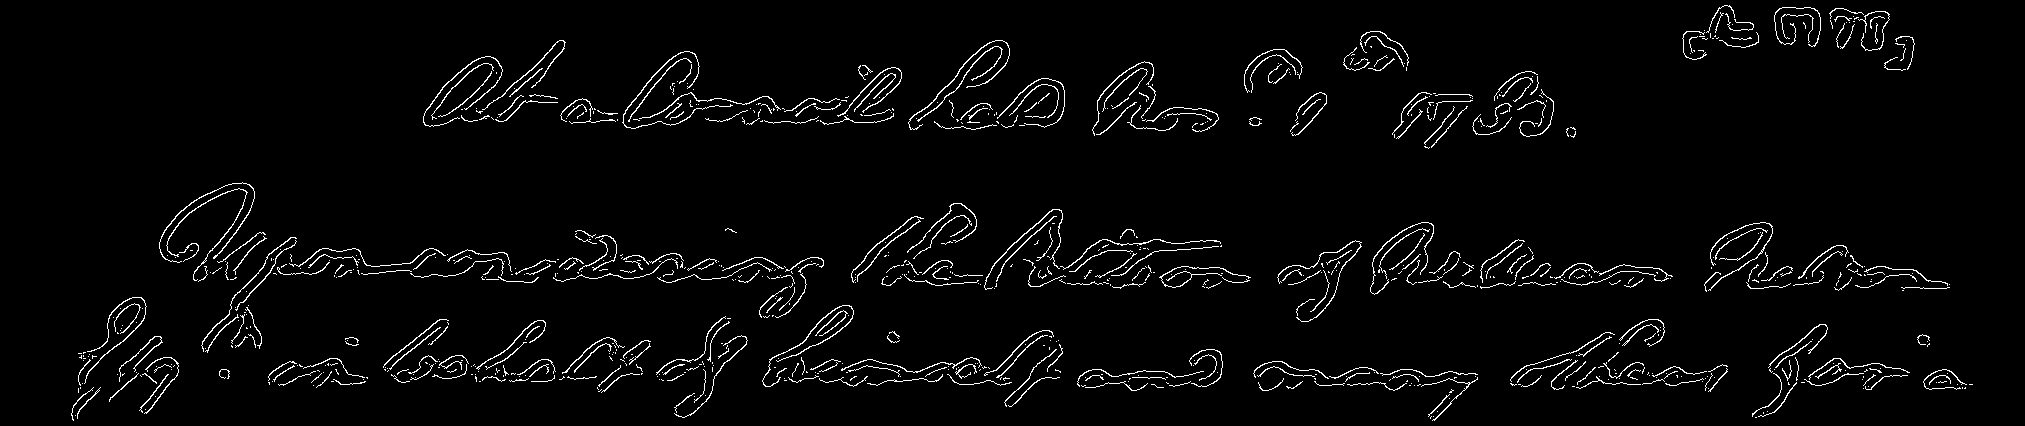 At a Council held Nov.
Upon considering the Petition of William Nelson
Esqr. in behalf of himself and many others for a